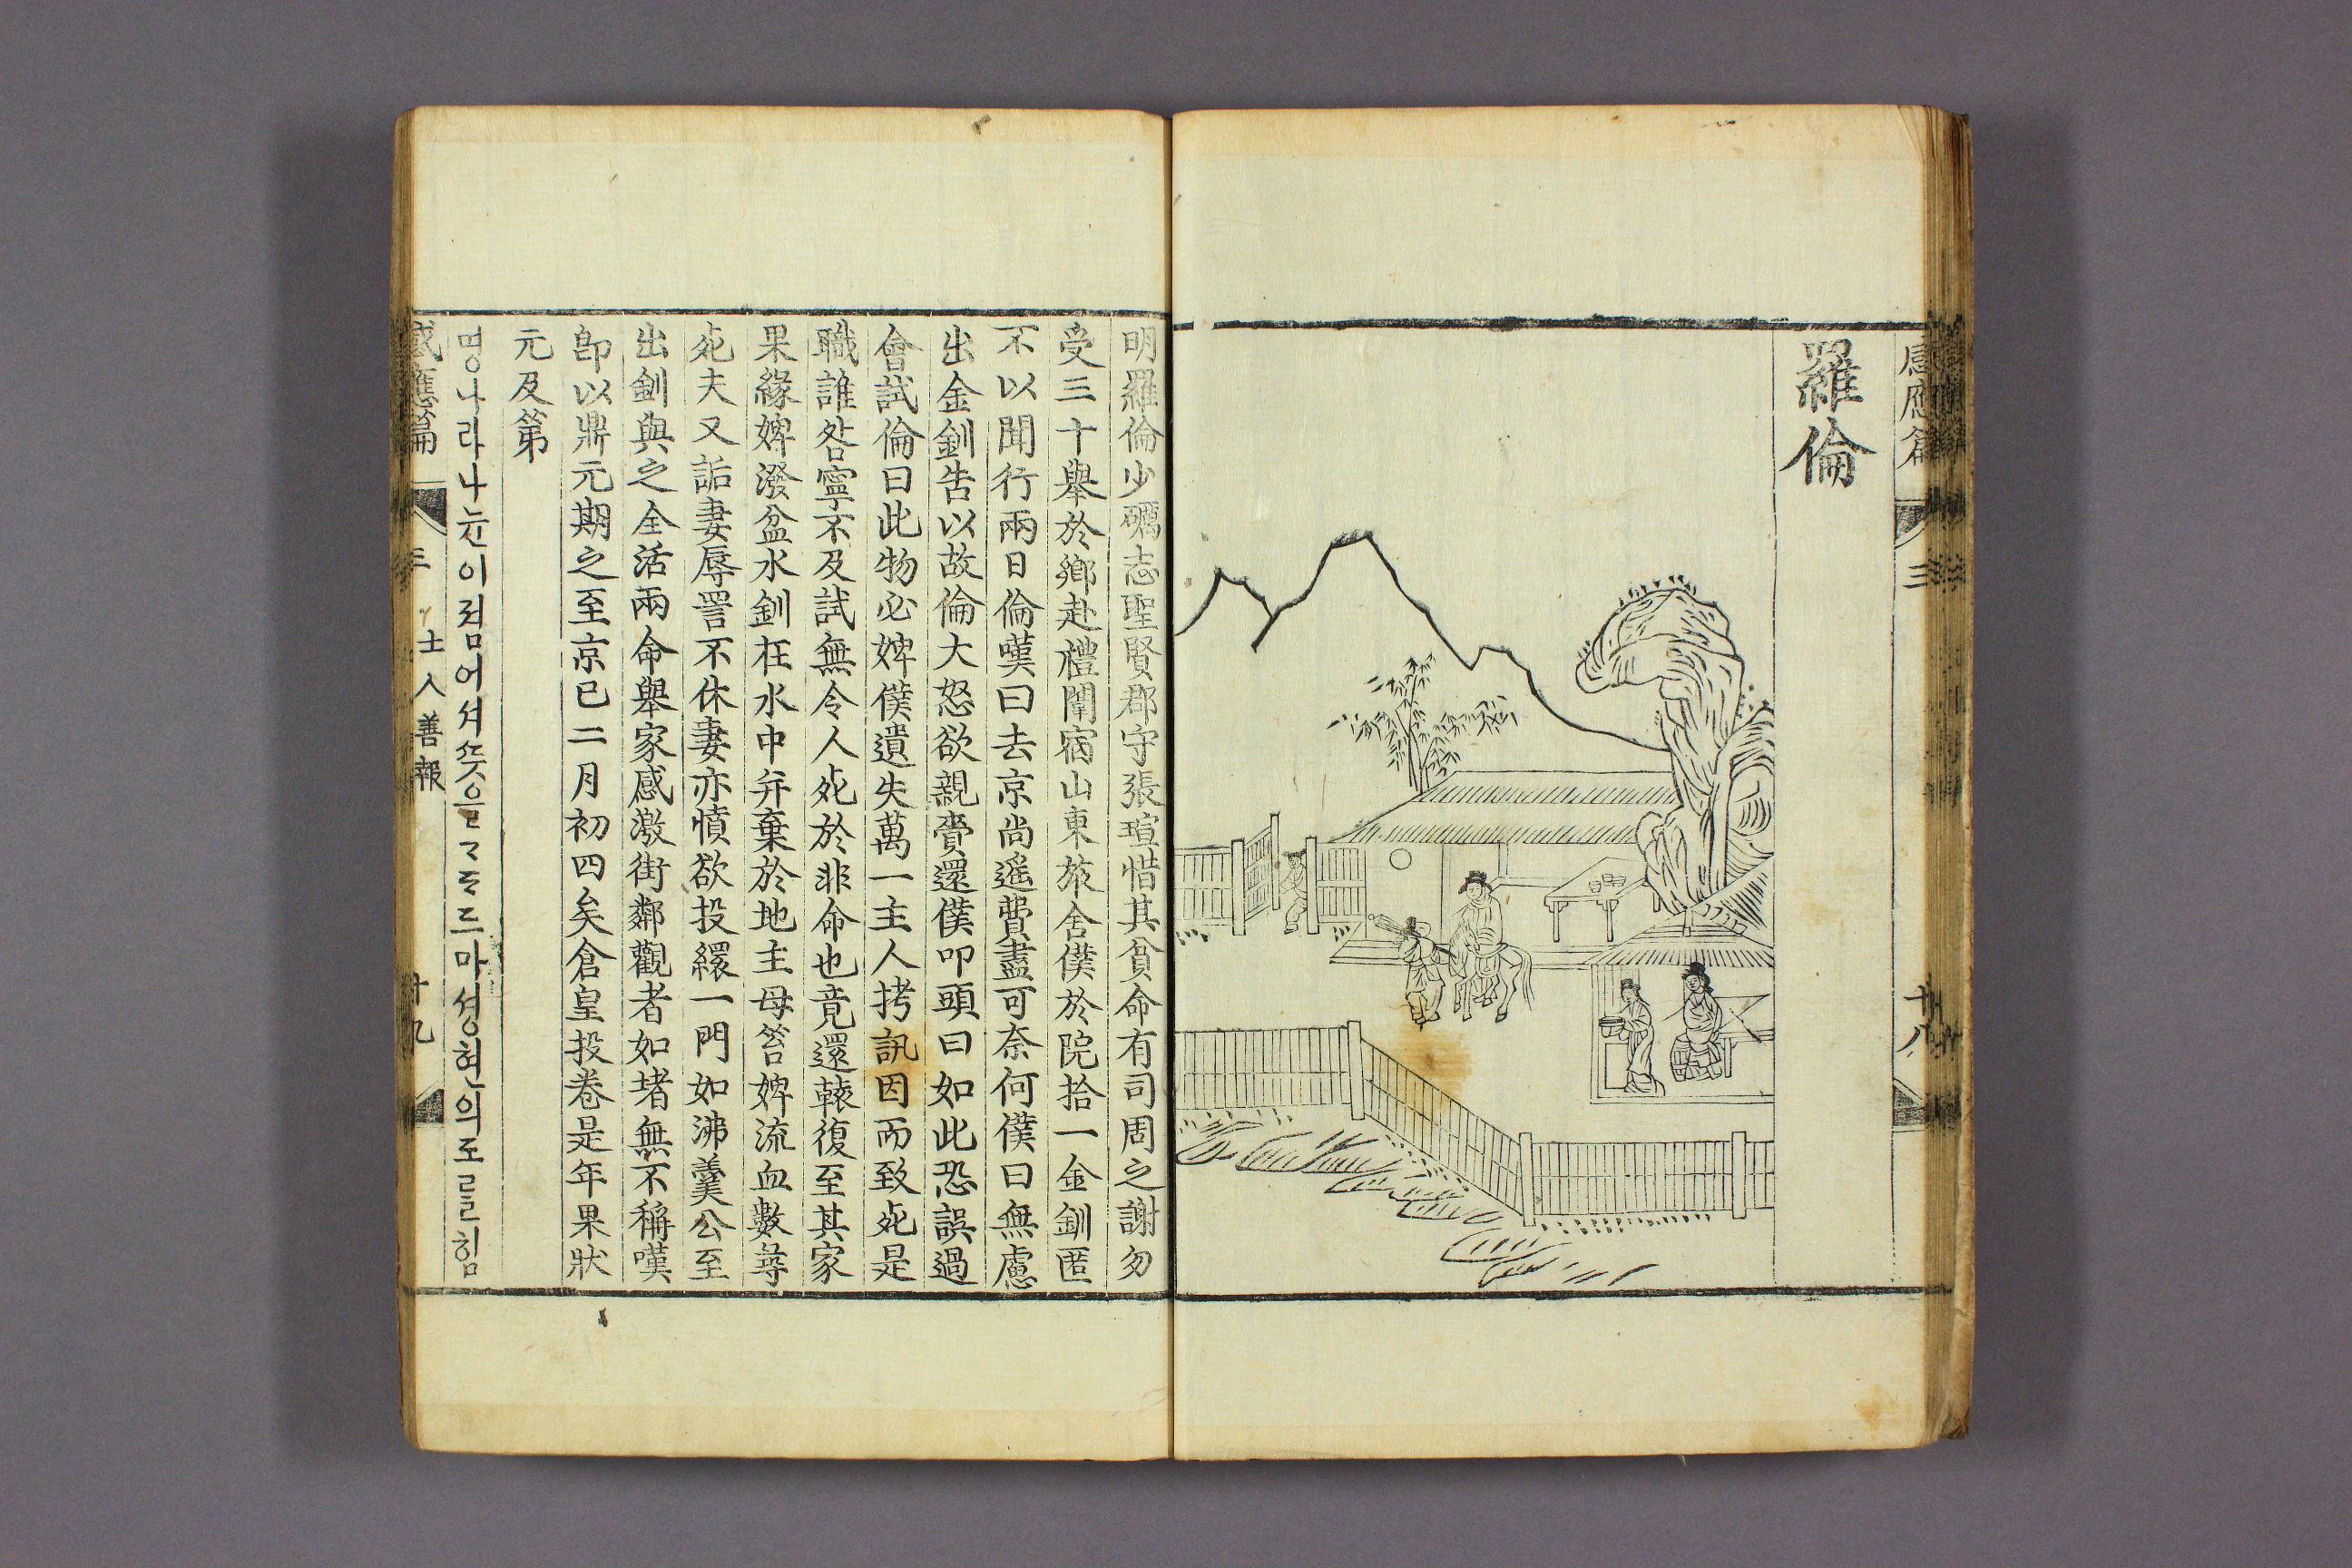 感應篇 三 十八
羅倫
明羅倫少礪志聖賢郡守張瑄惜其貧命有司周之謝勿
受三十舉於鄉赴禮闈宿山東旅舍僕於院拾一金釧匿
不以聞行兩日倫嘆曰去京尚遙費盡可奈何僕曰無慮
出金釧告以故倫大怒欲親賫還僕叩頭曰如此恐誤過
會試倫曰此物必婢僕遺失萬一主人拷訊因而致死是
職誰咎寧不及試無令人死於非命也竟還轅復至其家
果緣婢潑盆水釧在水中并棄於地主母笞婢流血數尋
死夫又詬妻辱詈不休妻亦憤欲投繯一門如沸羹公至
出釧與之全活兩命舉家感激街鄰觀者如堵無不稱嘆
卽以鼎元期之至京已二月初四矣倉皇投卷是年果狀
元及第
명나라 나륜이 졈어셔 ᄯᅳᆺ을 ᄀᆞ다ᄃᆞ마 셩현의 도ᄅᆞᆯ 힘
感應篇 三 士人善報 十九